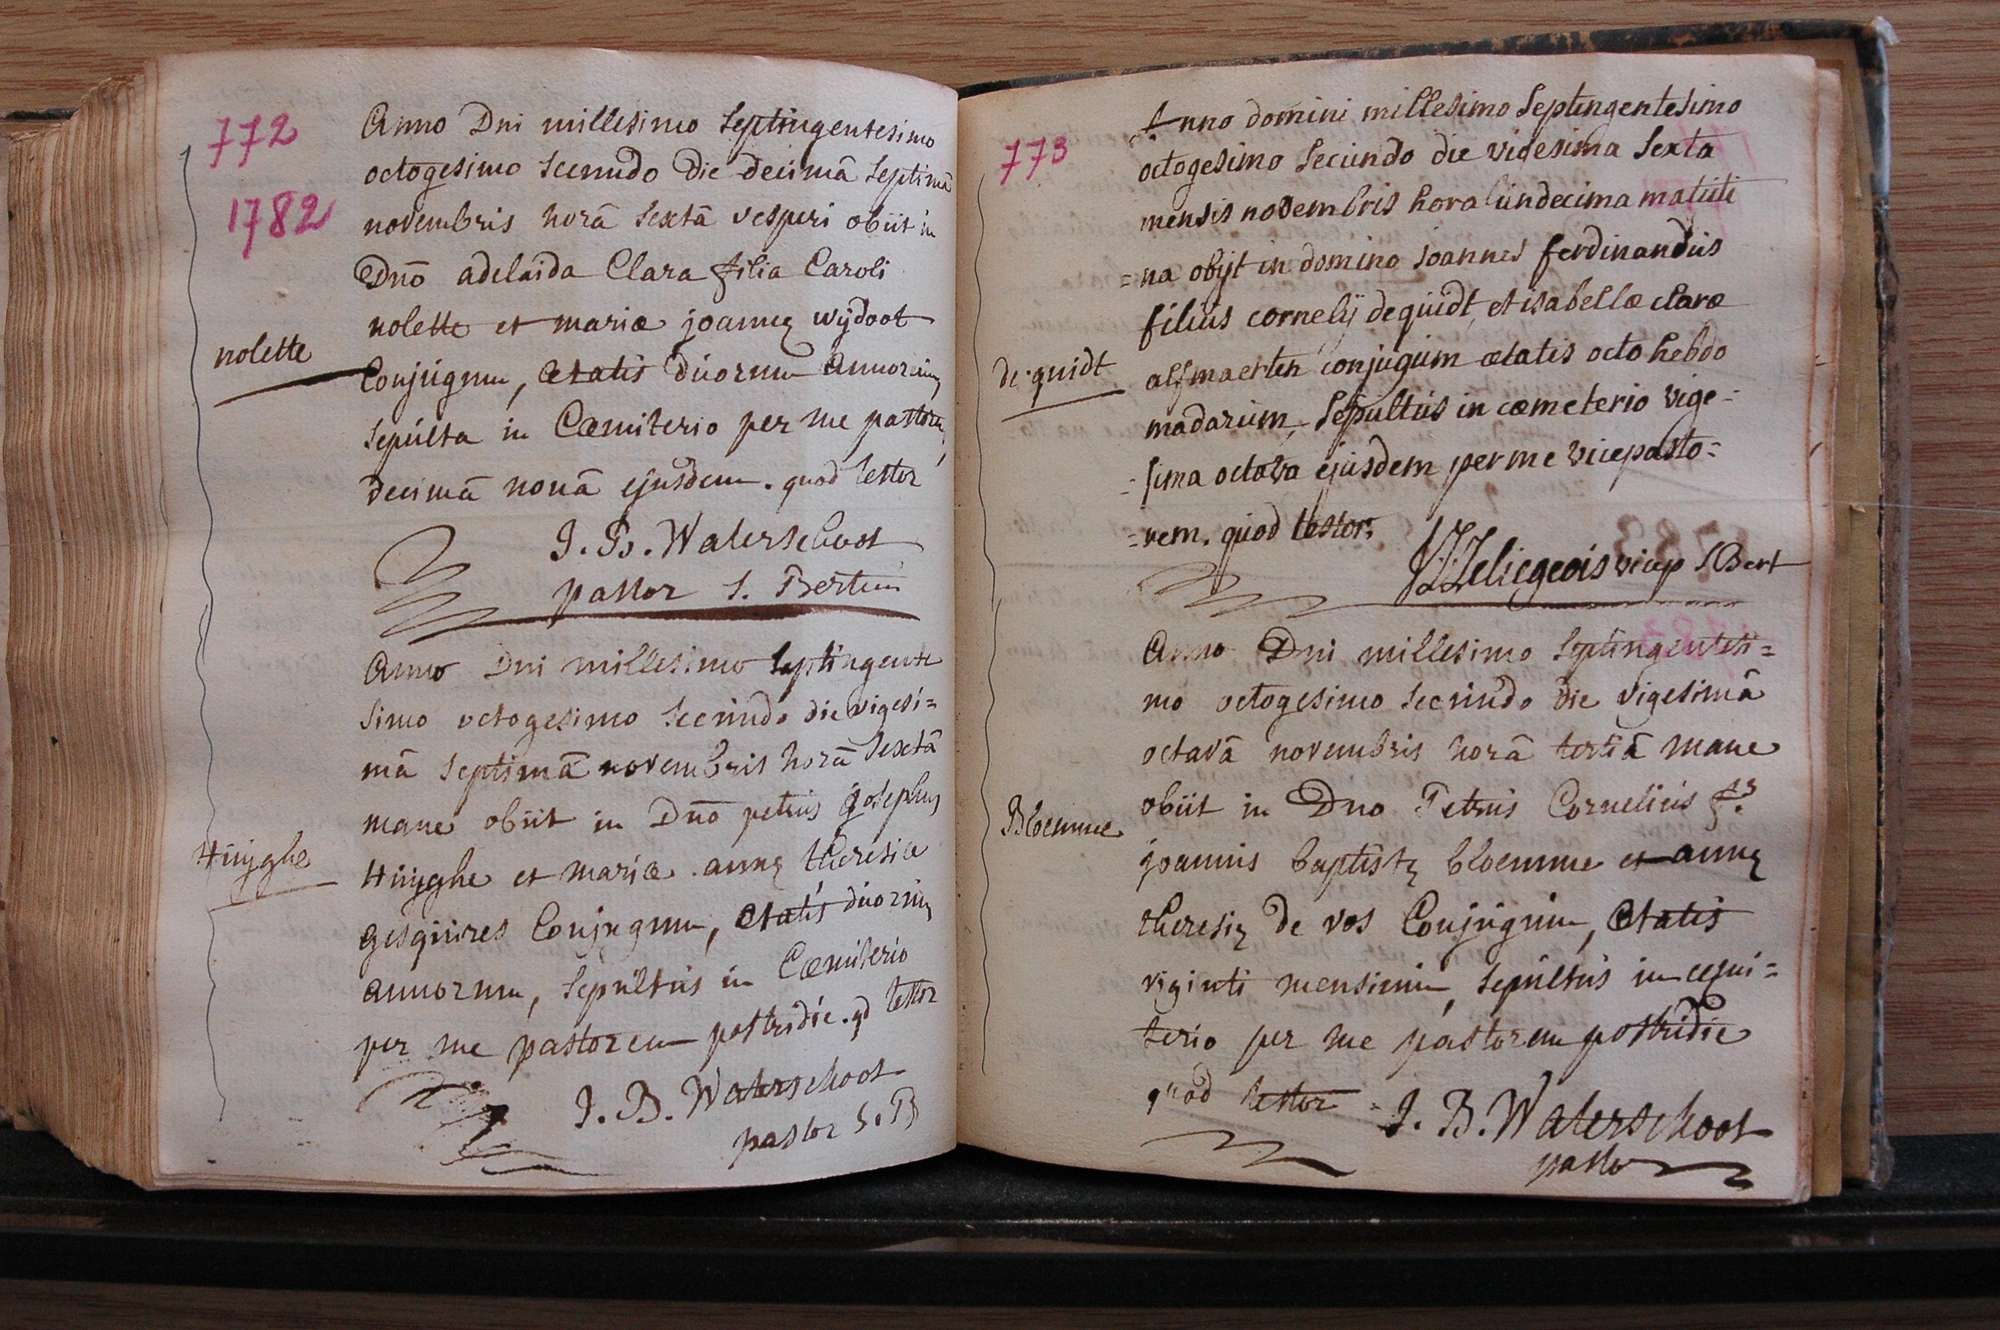 772
1782
Anno Dni millesimo septingentesimo
octogesimo secundo die decimâ septimâ
novembris horâ sextâ vesperi obiit in
Dno adelaida Clara filia Caroli
nolette et mariæ joannę wydoot
nolette
Conjugum, ætatis duorum annorum,
sepulta in Cœmiterio per me pastorem,
decimâ nonâ ejusdem. quod testor
J. B. Waterschoot
pastor S. Bertini
Anno Dni millesimo septingente
simo octogesimo secundo die vigesi=
mâ septimâ novembris horâ sextâ
mane obiit in Dno petrus josephus
Huÿghe
Huÿghe et mariæ annę theresiæ
gesquires Conjugum, ætatis duorum
annorum, sepultus in Cœmiterio
per me pastorem postridie. qd testor
J. B. Waterschoot
pastor S. B
773
Anno domini millesimo septingentesimo
octogesimo secundo die vigesima sexta
mensis novembris hora undecima matuti
=na obijt in domino joannes ferdinandus
filius cornelij dequidt, et isabellæ claræ
de quidt
conjugum ætatis octo hebdo
madarum, sepultus in cœmeterio vige=
=sima octava ejusdem per me vicepasto=
=rem. quod testor.
Leliegeois vicep S Bert
Anno Dni millesimo septingentesi=
mo octogesimo secundo die vigesimâ
octavâ novembris horâ tertiâ mane
obiit in Dno Petrus Cornelius fs
Bloemme
joannis baptistę bloemme et annę
theresię de vos Conjugum, ætatis
viginti mensium, sepultus in cœmi=
terio per me pastorem postridie
quod testor = J. B. Waterschoot
pastor